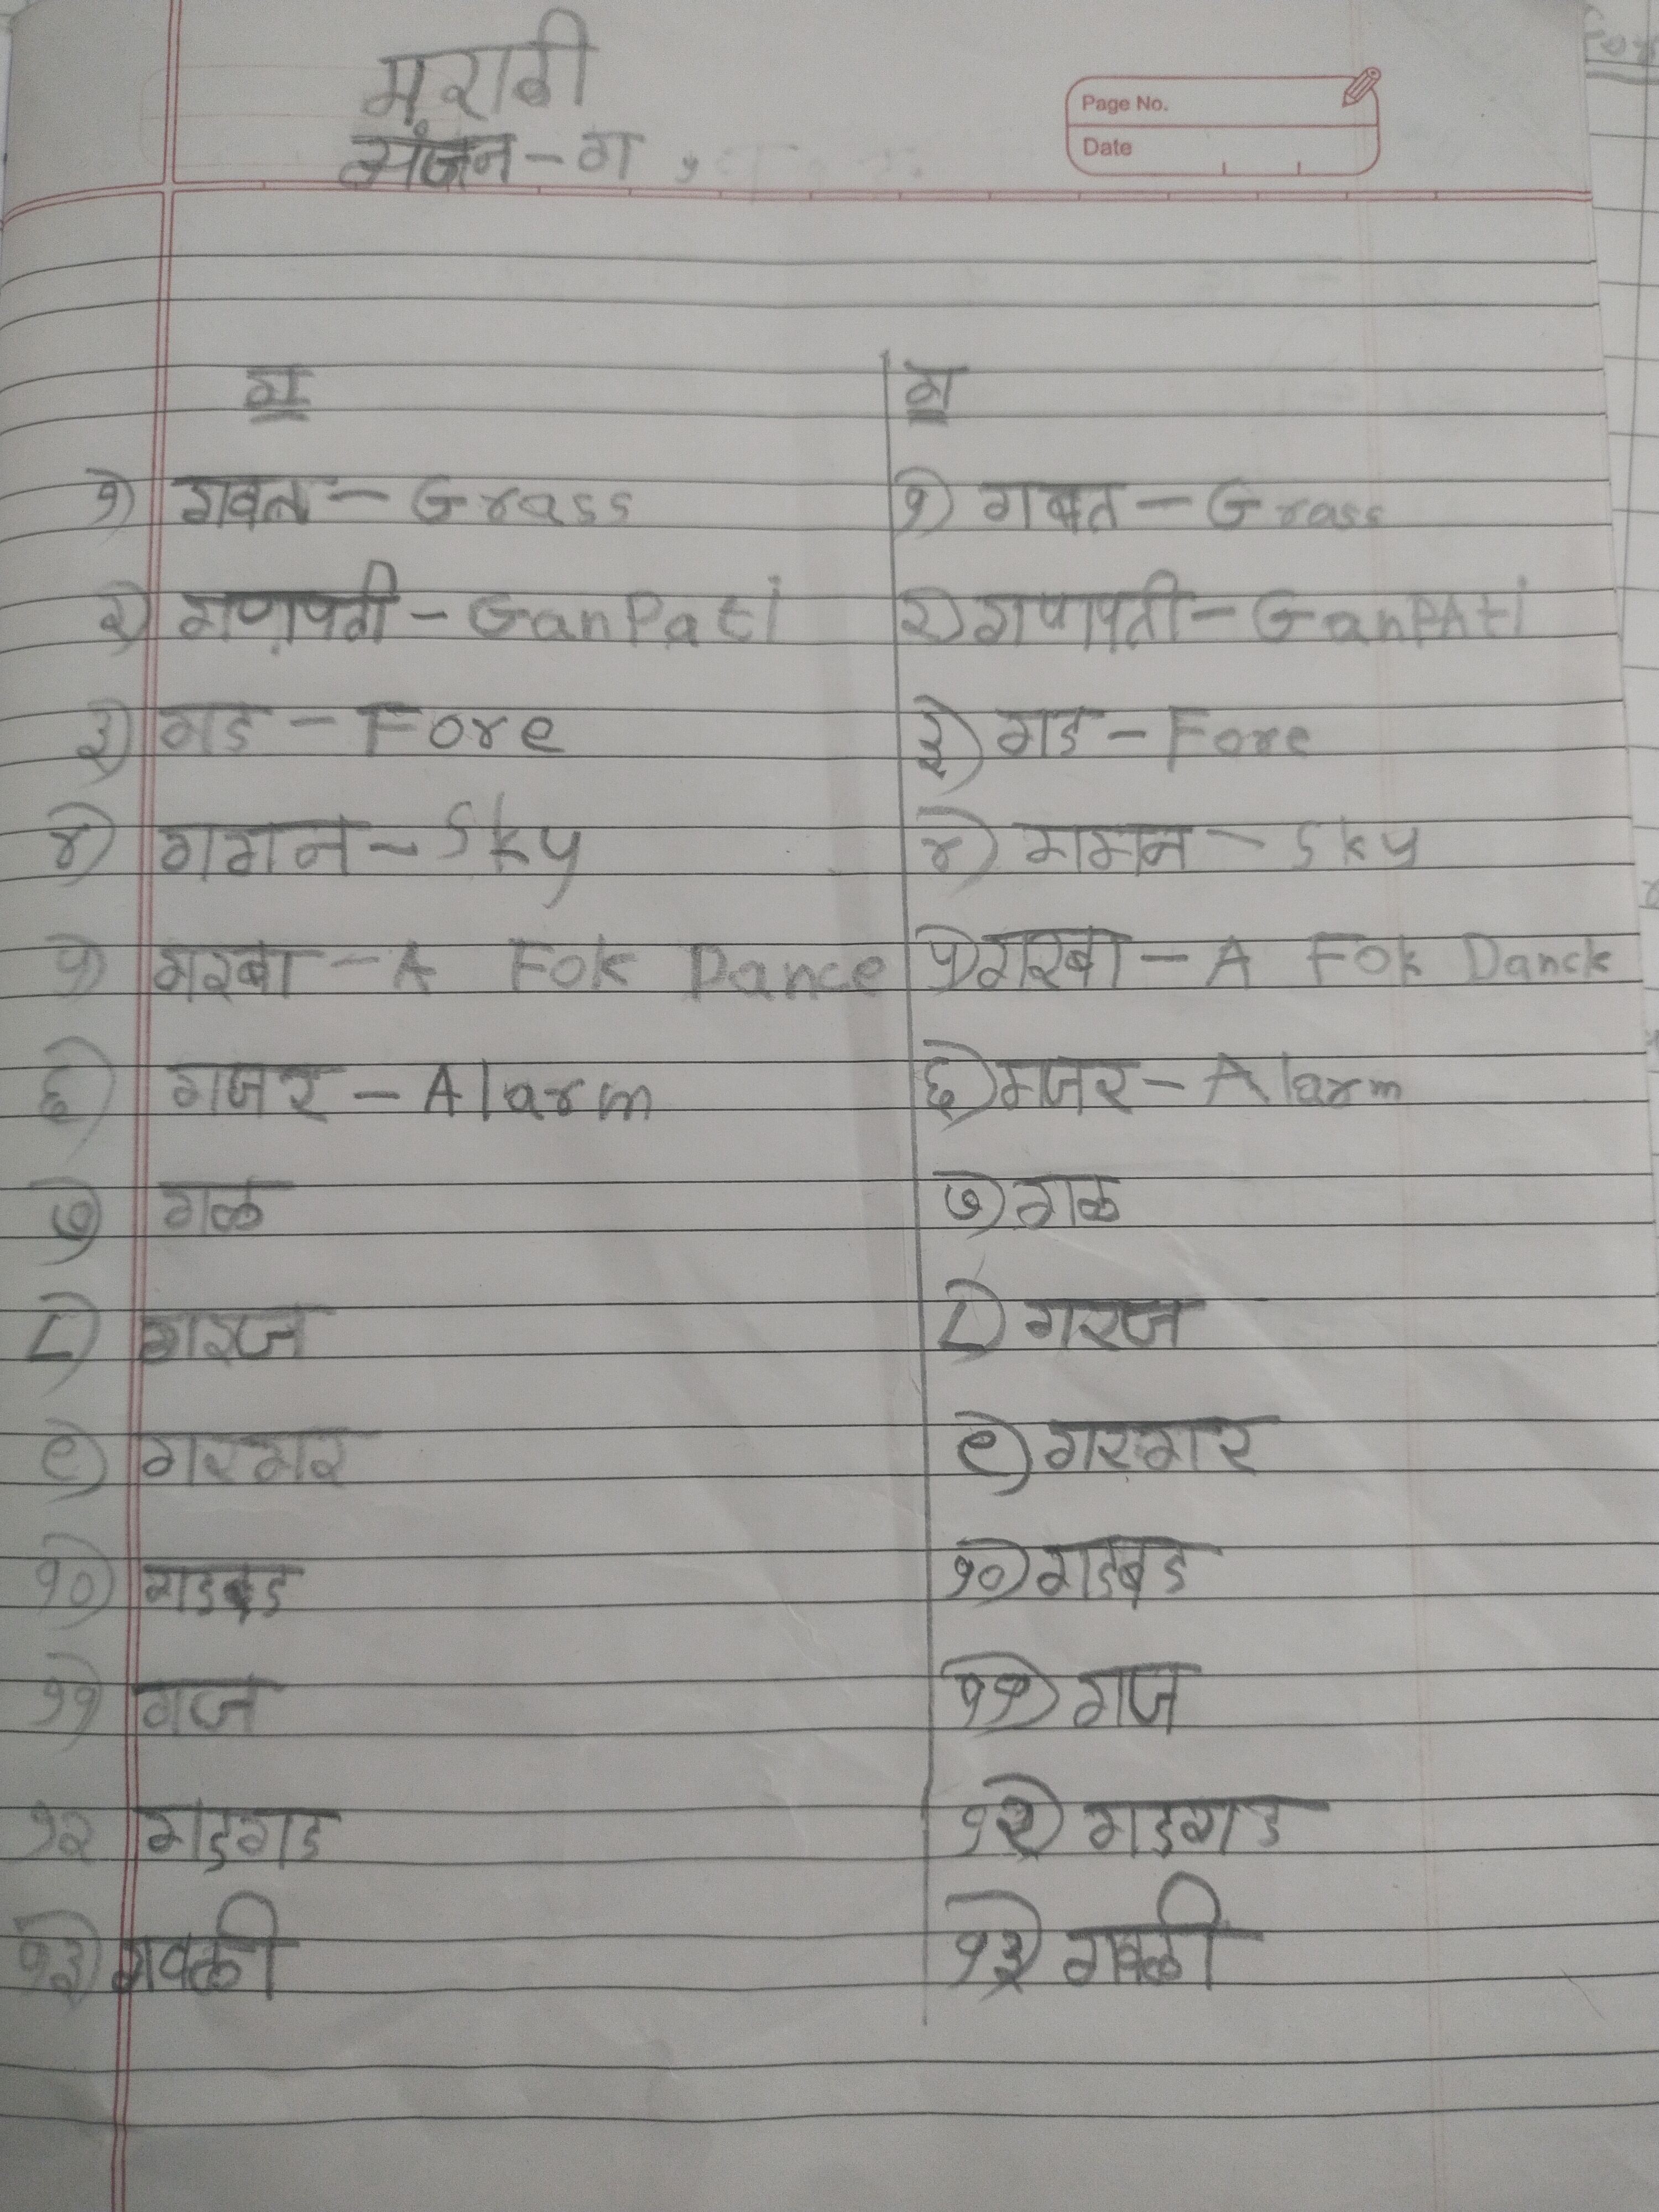 मराठी
व्यंजन - ग
Page No.
Date
ग ग
१) गवत - Grass १) गवत - Grass
२) गणपती - GanPati २) गणपती - GanPAti
३) गड - Fore ३) गड - Fore
४) गगन - Sky ४) गगन - Sky
५) गरबा - A Fok Dance ५) गरबा - A Fok Danck
६) गजर - Alarm ६) गजर - Alarm
७) गळ ७) गळ
८) गरज ८) गरज
९) गरगर ९) गरगर
१०) गडबड १०) गडबड
११) गज ११) गज
१२ गडगड १२) गडगड
१३) गवळी १३) गवळी